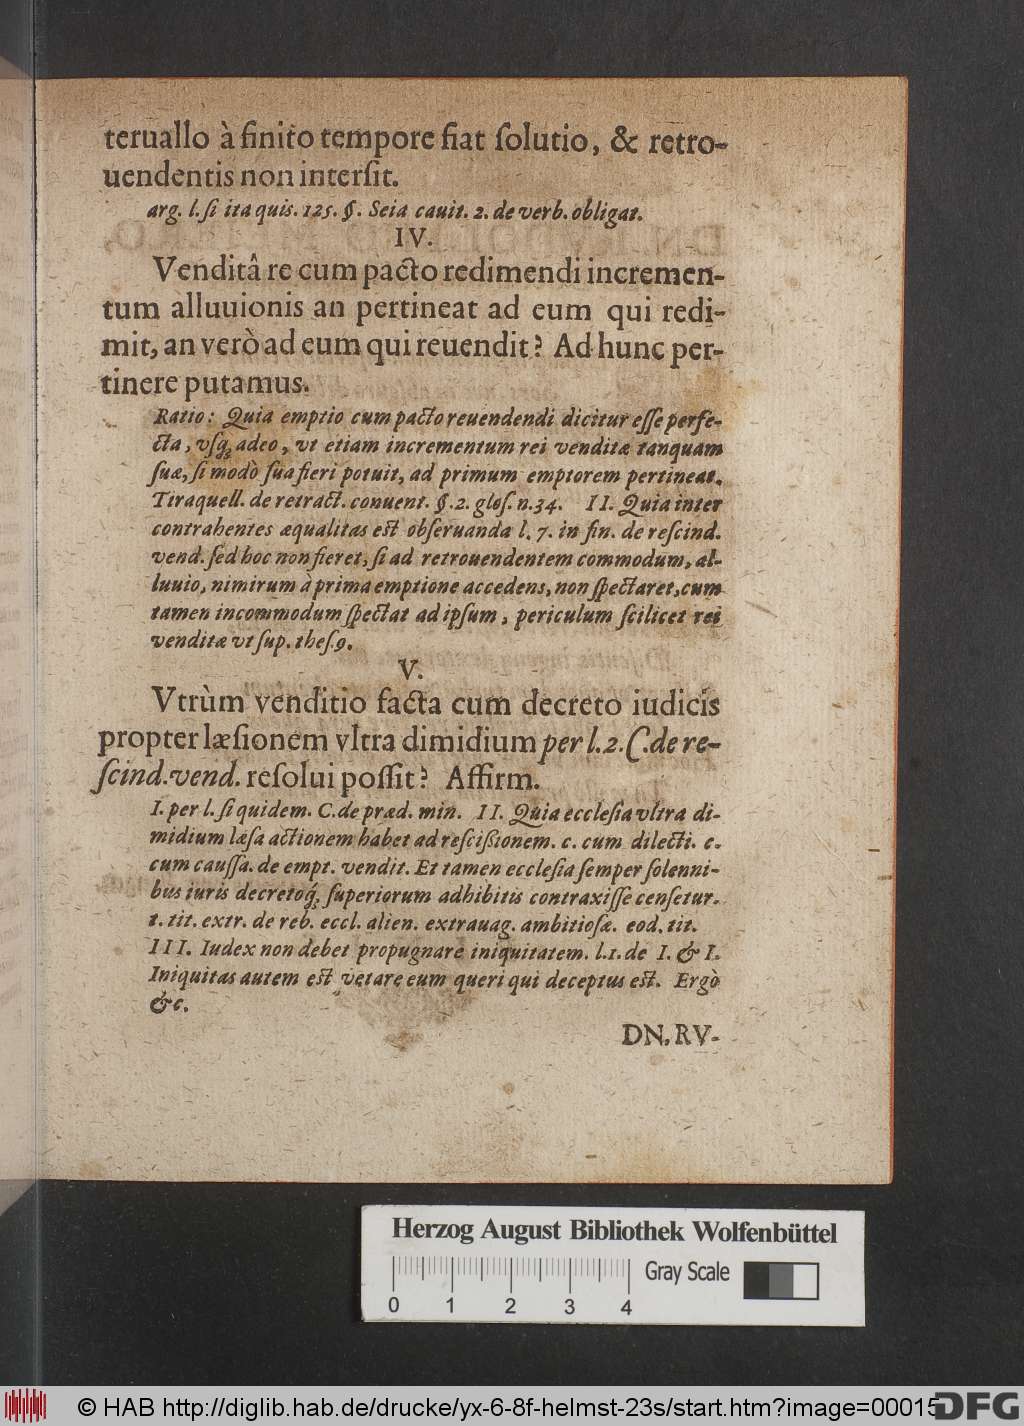 teruallo à finito tempore fiat ſolutio, & retro-
uendentis non interſit.
arg. l. ſi ita quis. 125. §. Seia cauit. 2. de verb. obligat.
IV.
Venditâ re cum pacto redimendi incremen-
tum alluuionis an pertineat ad eum qui redi-
mit, an verò ad eum qui reuendit? Ad hunc per-
tinere putamus.
Ratio: Quia emptio cum pacto reuendendi dicitur eſſe perfe-
cta, vſq; adeo, vt etiam incrementum rei venditæ tanquam
ſuæ, ſi modò ſua fieri potuit, ad primum emptorem pertineat.
Tiraquell. de retract. conuent. §. 2. gloſ. n. 34. II. Quia inter
contrahentes æqualitas eſt obſeruanda l. 7. in fin. de reſcind.
vend. ſed hoc non fieret, ſi ad retrouendentem commodum, al-
luuio, nimirum à prima emptione accedens, non ſpectaret, cum
tamen incommodum ſpectat ad ipſum, periculum ſcilicet rei
venditæ vt ſup. theſ. 9.
V.
Vtrùm venditio facta cum decreto iudicis
propter læſionem vltra dimidium per l. 2. C. de re-
ſcind. vend. reſolui poſſit? Affirm.
I. per l. ſi quidem. C. de præd. min. II. Quia eccleſia vltra di-
midium læſa actionem habet ad reſciſsionem. c. cum dilecti. c.
cum cauſſa. de empt. vendit. Et tamen eccleſia ſemper ſolenni-
bus iuris decretoq́; ſuperiorum adhibitis contraxiſſe cenſetur.
t. tit. extr. de reb. eccl. alien. extrauag. ambitioſæ. eod. tit.
III. Iudex non debet propugnare iniquitatem. l. 1. de I. & I.
Iniquitas autem eſt vetare eum queri qui deceptus eſt. Ergò
&c.
DN. RV-
Herzog August Bibliothek Wolfenbüttel
Gray Scale
0 1 2 3 4
© HAB http://diglib.hab.de/drucke/yx-6-8f-helmst-23s/start.htm?image=00015
DFG